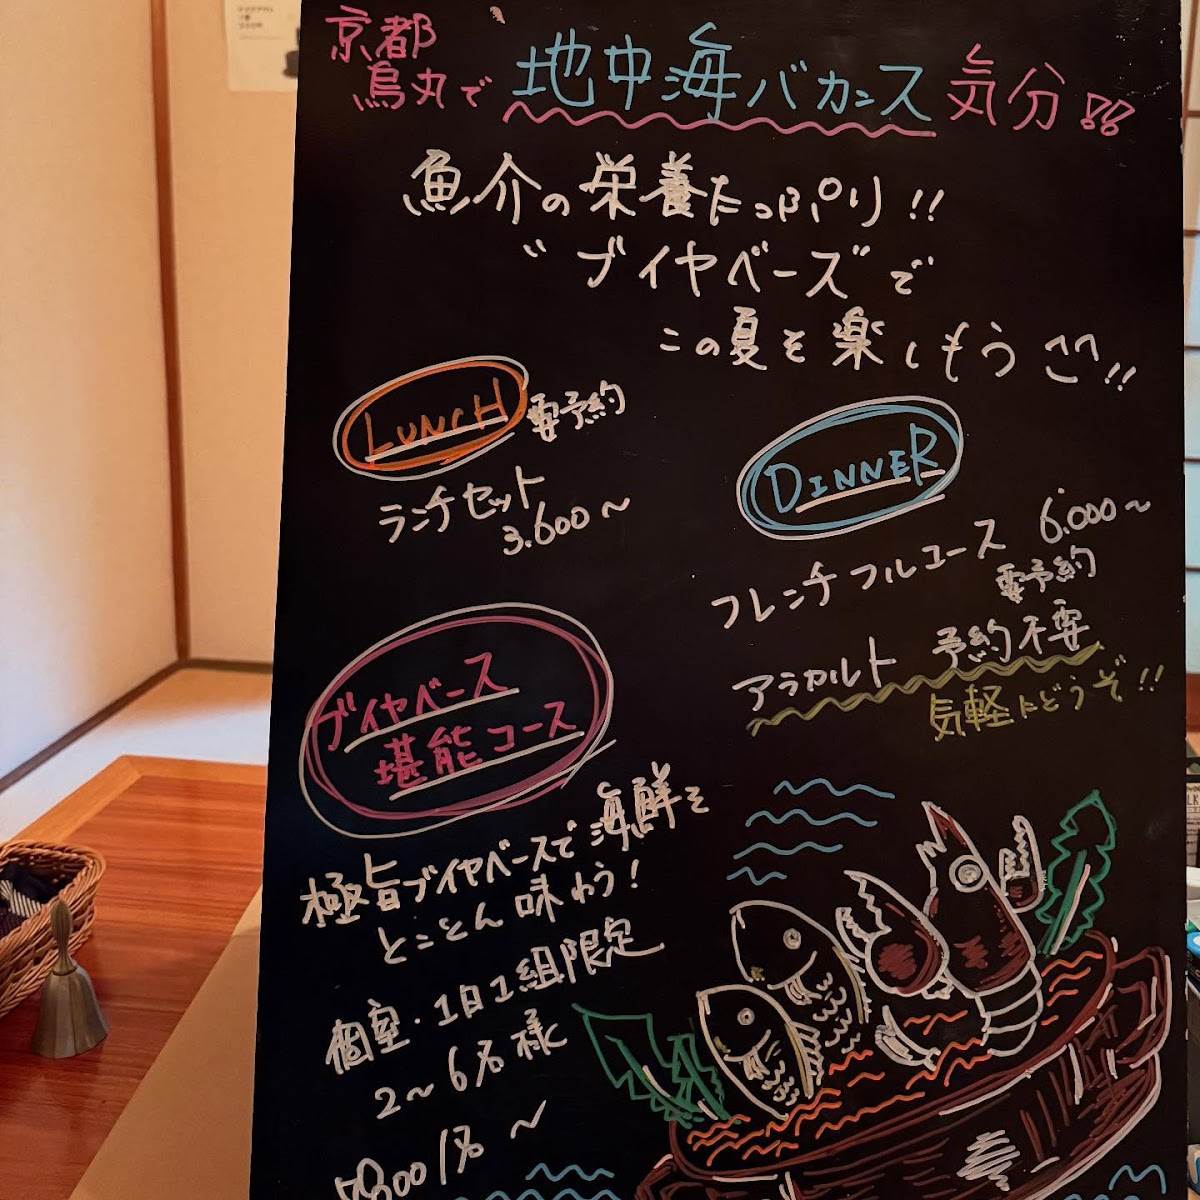 京都
烏丸で 地中海バカンス気分!!
魚介の栄養たっぷり!!
"ブイヤベース"で
この夏を楽しもう!!
LUNCH 要予約
ランチセット
3.600〜
DINNER
フレンチフルコース 6.000〜
要予約
アラカルト 予約不要
気軽にどうぞ!!
ブイヤベース
堪能コース
極旨ブイヤベースで海鮮を
とことん味わう!
個室・1日1組限定
2〜6名様